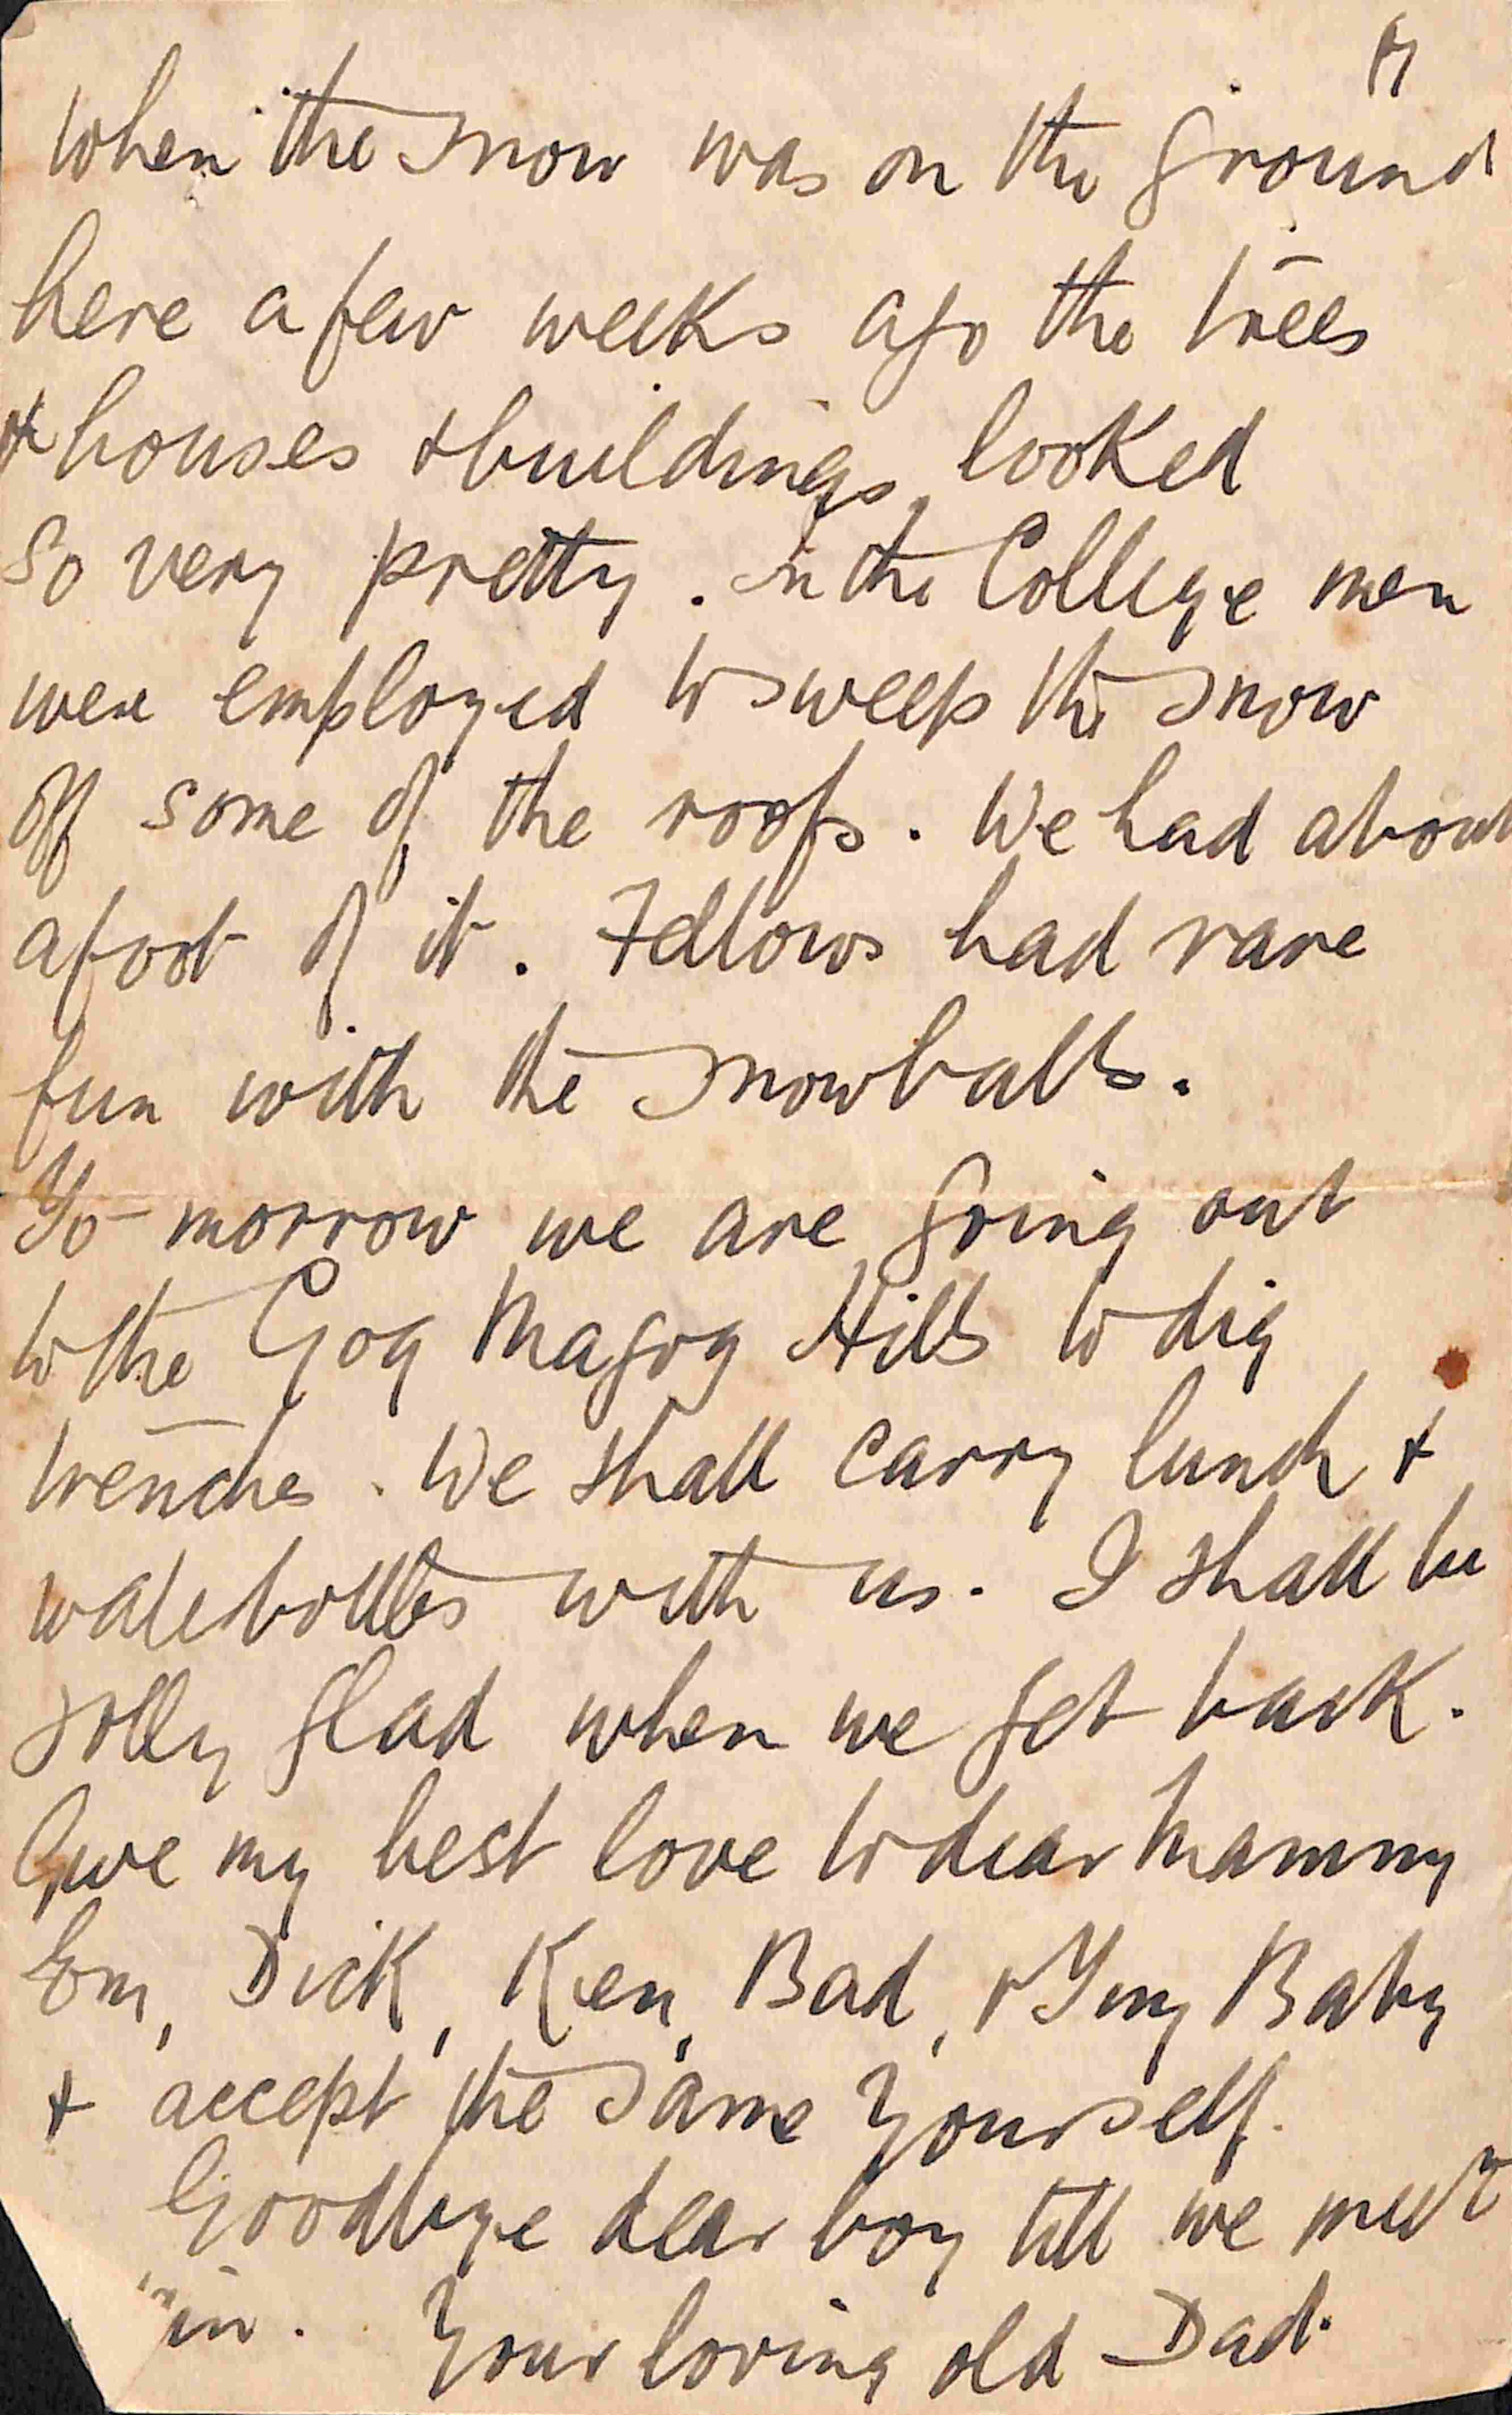 When the snow was on the ground
here a few weeks ago the trees
& houses & buildings looked
so very pretty. In the College men
were employed to sweep the snow
off some of the roofs. We had about
a foot of it. Fellows had rare
fun with the snowballs.
To-morrow we are going out
to the Gog Magog Hills to dig
trenches. We shall carry lunch &
waterbottles with us. I shall be
jolly glad when we get back.
Give my best love to dear Mammy
Tom, Dick, Ken, Bad, & Baby
& accept the same yourself.
Goodbye dear boy till we meet
in. Your loving old Dad.